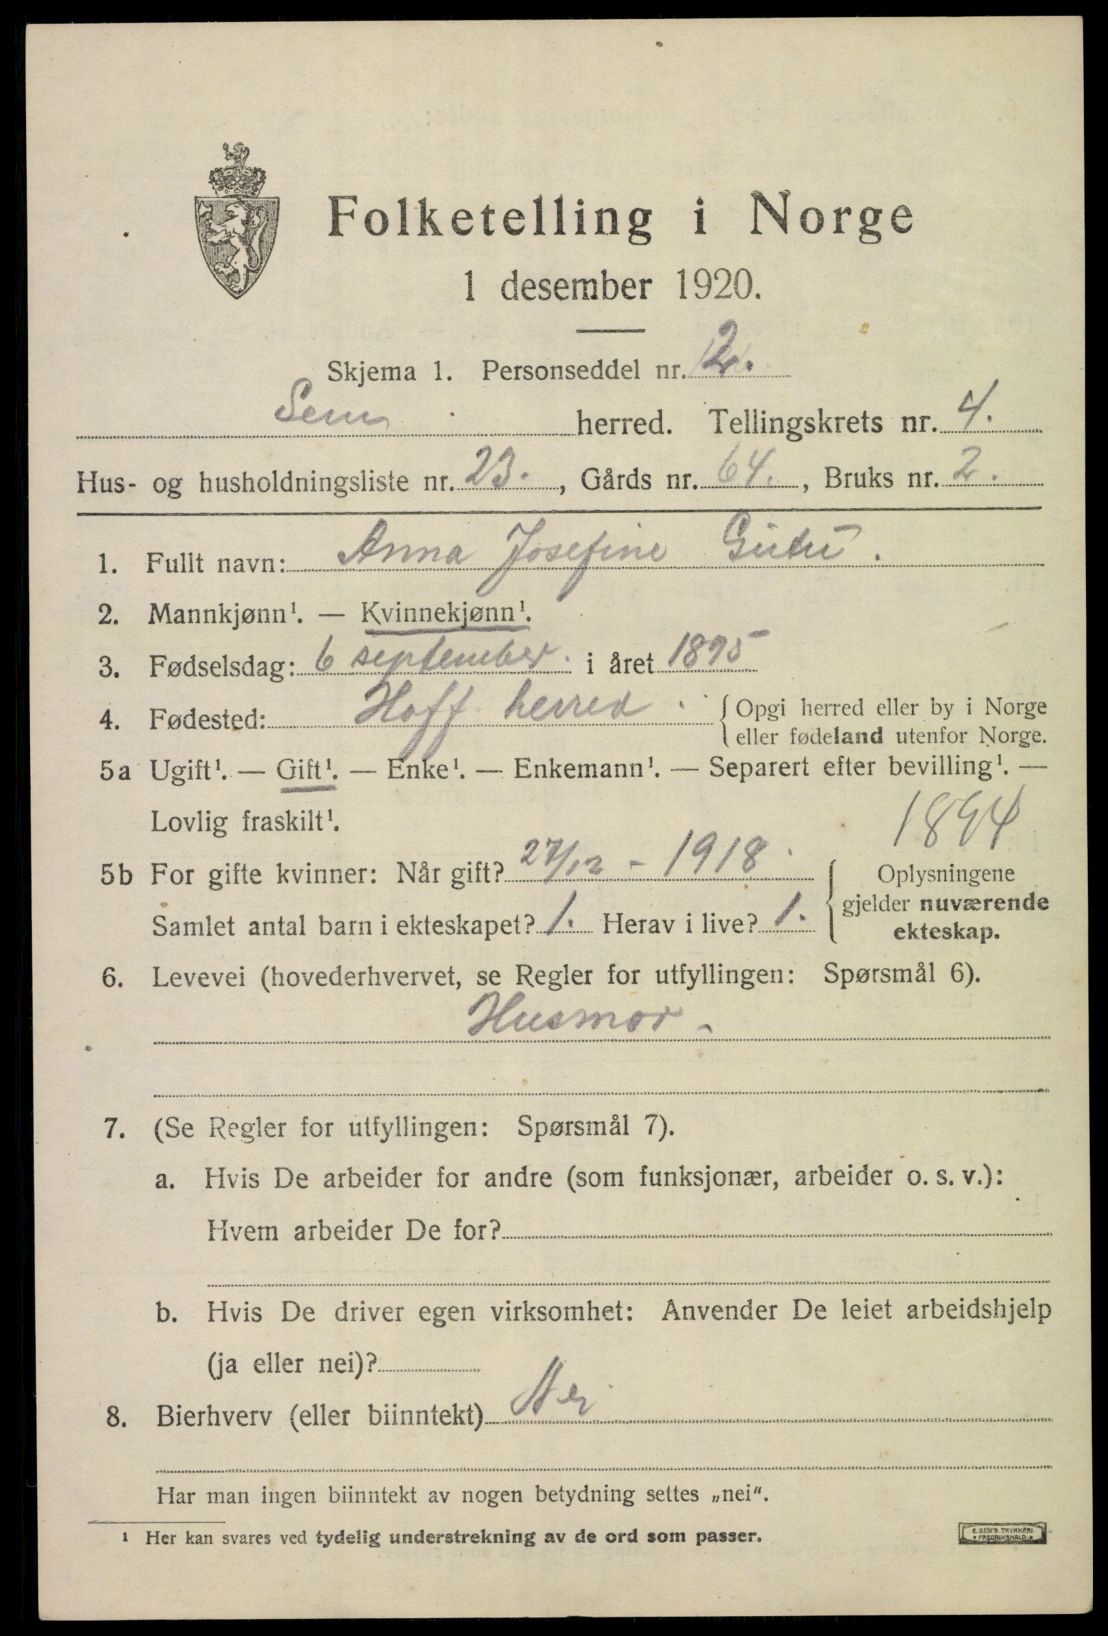 Folketelling i Norge
1 desember 1920.
Skjema 1. Personseddel nr. 2.
Sem herred. Tellingskrets nr. 4.
Hus- og husholdningsliste nr. 23., Gårds nr. 64., Bruks nr. 2.
1. Fullt navn: Anna Josefine
2. Mannkjønn¹. — Kvinnekjønn¹.
3. Fødselsdag: 6 september. i året 1895
4. Fødested: Hoff herred. {Opgi herred eller by i Norge
eller fødeland utenfor Norge.
5a Ugift¹. — Gift¹. — Enke¹. — Enkemann¹. — Separert efter bevilling¹. —
Lovlig fraskilt¹. 1894
5b For gifte kvinner: Når gift? 27/12 - 1918. Oplysningene
Samlet antal barn i ekteskapet? 1. Herav i live? 1. gjelder nuværende
ekteskap.
6. Levevei (hovederhvervet, se Regler for utfyllingen: Spørsmål 6).
Husmor.
7. (Se Regler for utfyllingen: Spørsmål 7).
a. Hvis De arbeider for andre (som funksjonær, arbeider o. s. v.):
Hvem arbeider De for?
b. Hvis De driver egen virksomhet: Anvender De leiet arbeidshjelp
(ja eller nei)?
8. Bierhverv (eller biinntekt) Nei
Har man ingen biinntekt av nogen betydning settes „nei".
¹ Her kan svares ved tydelig understrekning av de ord som passer.
E. SEM'S TRYKKERI
FREDRIKSHALD